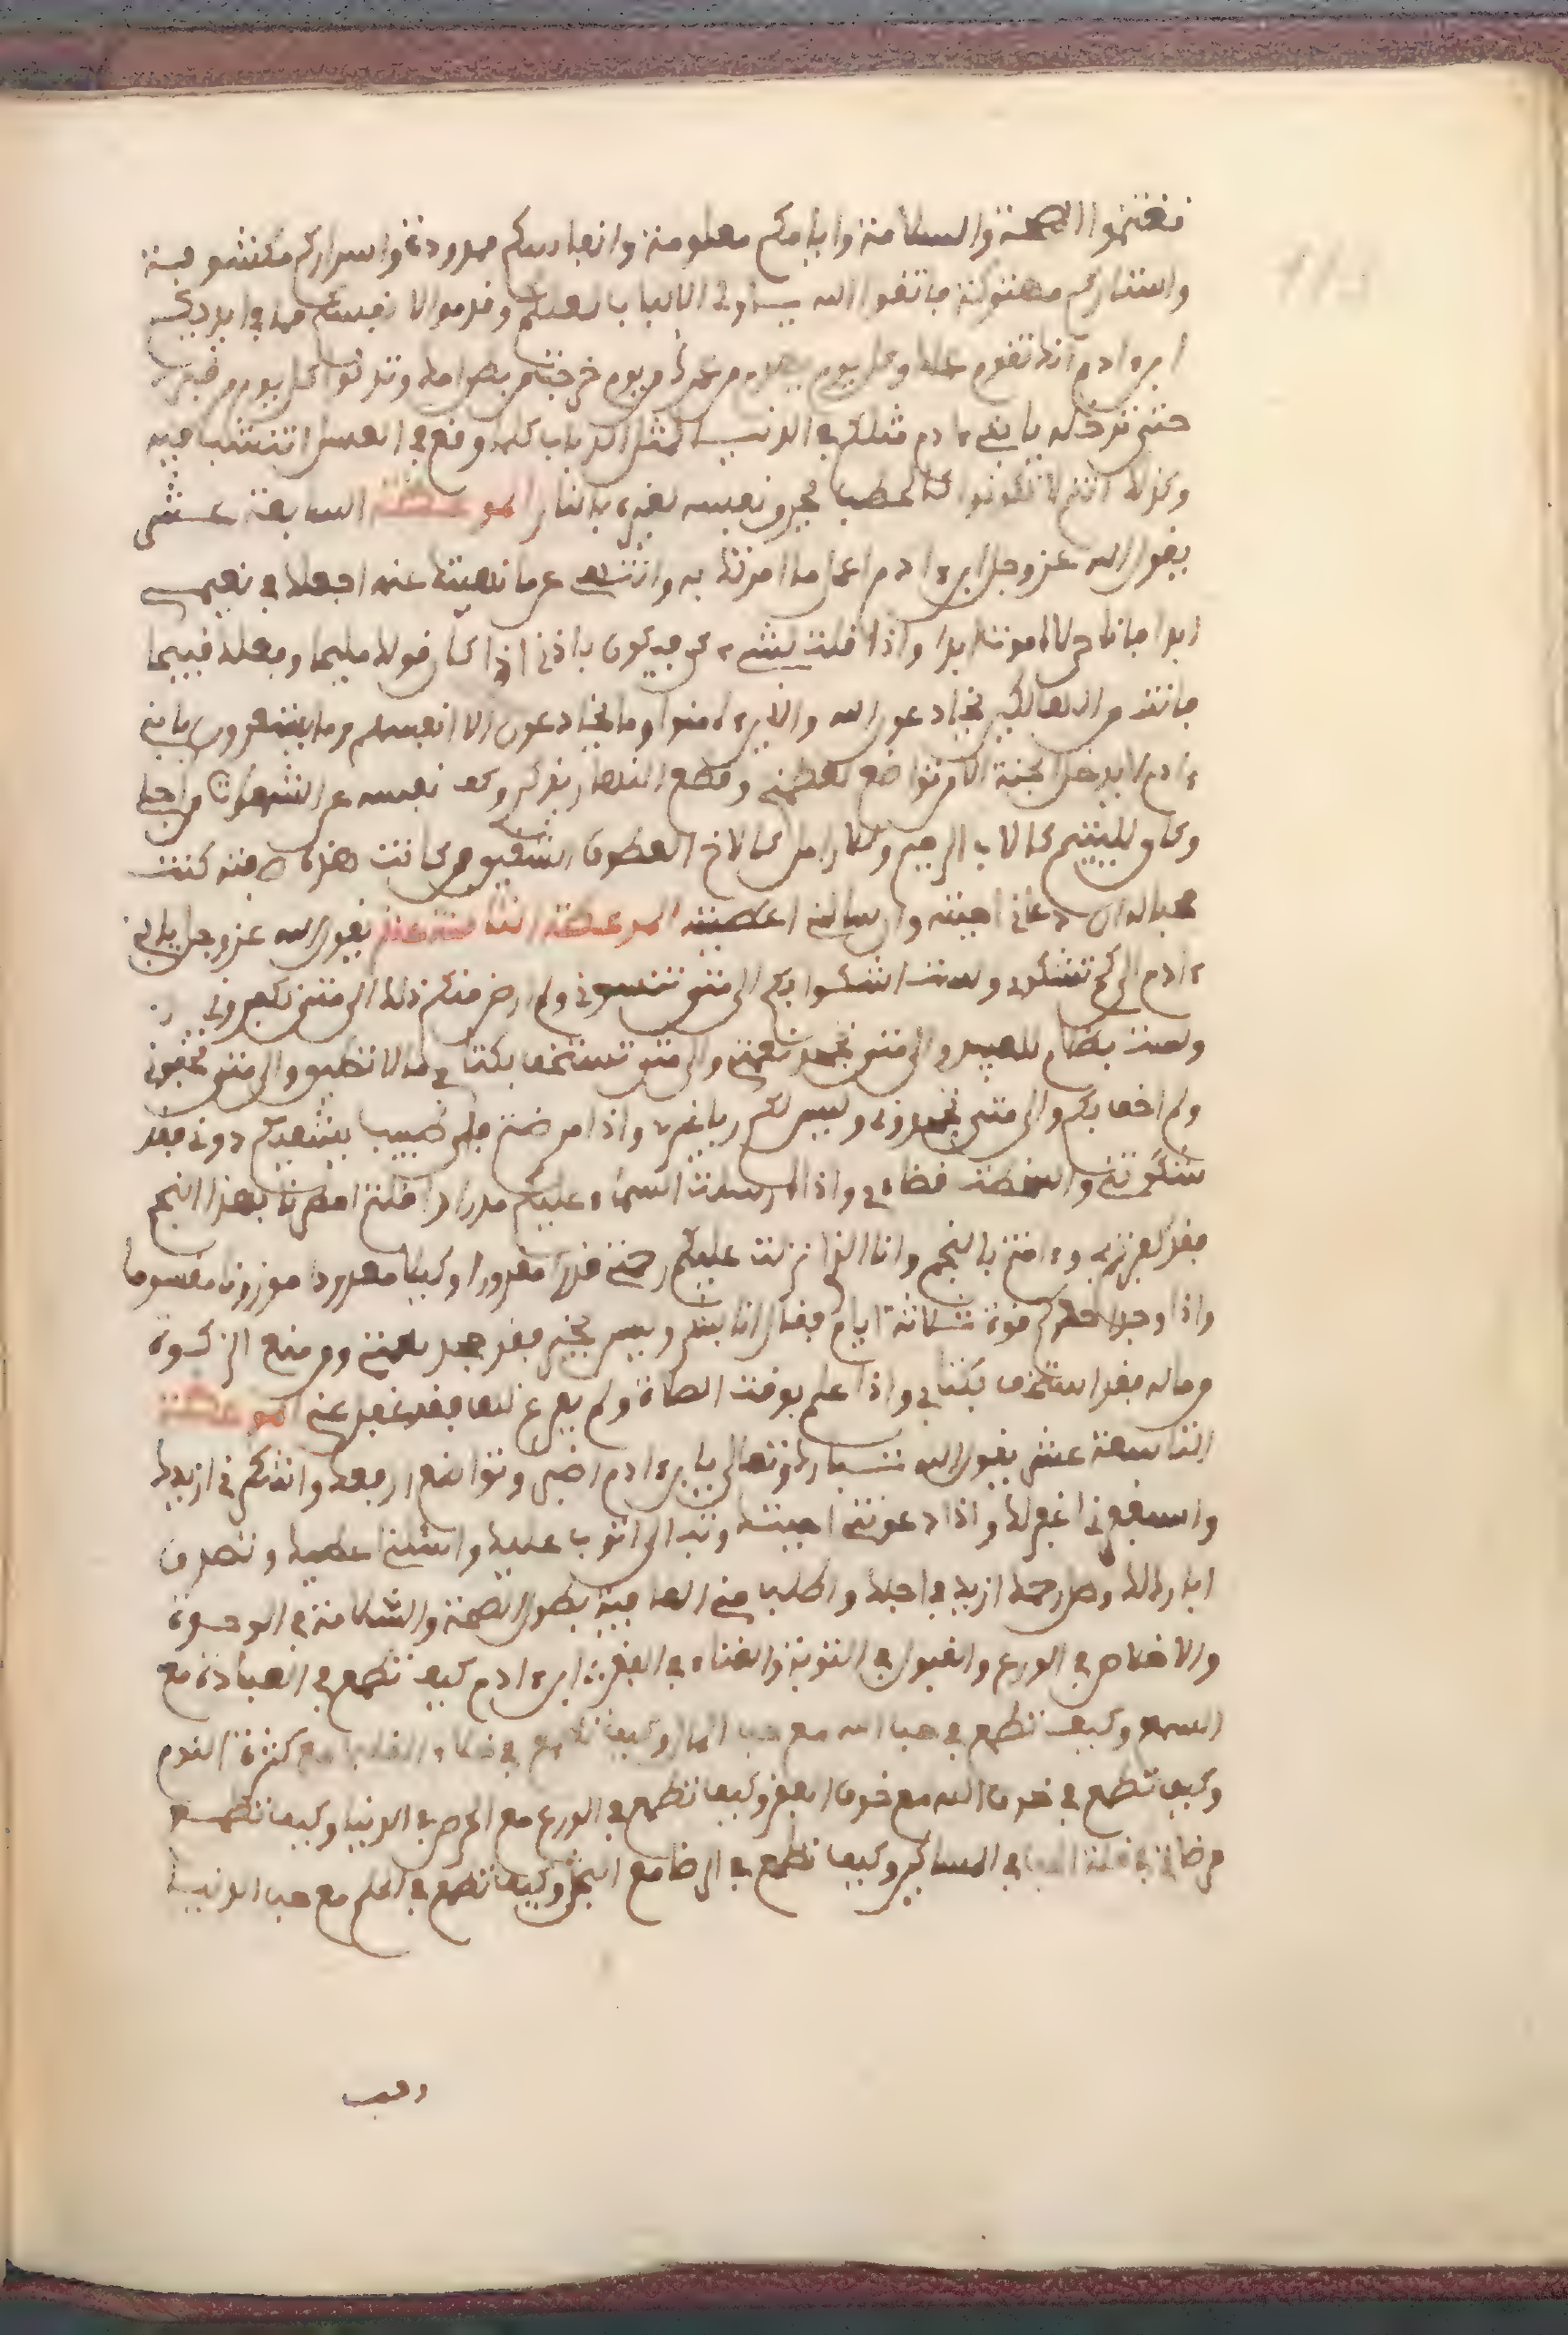 تغتنموا الصحة والسلامة وايامكم معلومة وانفاسكم معدودة واسراركم مكشوفة
واستاركم مهتوكة فاتقوا الله يـاولى الالباب لعلكم وقدموا لانفسكم مما في ايديكم
ابن ءادم انك تقدم على وكل يوم يهدم من عمرك من يوم خرجت من بطن امك وتدنوا كل يوم من قبرك
حتى تدخله يا بنى ءادم مثلك في الدنيا كمثل الذباب كلما وقع في العسل انتشب فيه
وكذلك انت لا تكونوا كالحطب يحرق نفسه لغيره بالنار الموعظة السابعة عشر
يقول الله عز وجل ابن ءادم اعمل ما امرتك به وانته عن ما نهيتك عنه اجعلك في نعيمى
ابدا فانا حى لا اموت ابدا واذا قلت لشىء كن فيكون باذنى اذا كان قولك مليحا وفعلك قبيحا
فانت من الهالكين يخادعون الله والذين ءامنوا وما يخادعون الا انفسهم وما يشعرون يا بنى
ءادم لا يدخل الجنة الا من تواضع لعظمتى وقطع النهار بذكرى وكف نفسه عن الشهوات من اجلى
وكان لليتيم كالاب الرحيم وللارامل كالاخ العطوف الشفيق من كانت هذه صفته كنت
محبا له ان دعانى اجبته وان سالنى اعطيته الموعظة الثامنة عشر يقول الله عز وجل يا بنى
ءادم الى كم تشكونى ولست اشكوا بكم الى متى تنسونى ولم ارض منكم ذلك الى متى تكفرونى
ولست بظلام للعبيد والى متى تجحد نعمتى والى متى تستخف بكتابى ما لا تطيق والى متى تجفونى
ولم اجف بكم والى متى تجحدونى وليس لكم ربا غيرى واذا مرضتم فاى طبيب يشفيكم دونى فقد
شكوتنى واسخطت قضاءى واذا ارسلت السماء عليكم مدرارا قلتم امطرنا بهذا النجم
فقد كفرتم بى وءامنتم بالنجم وانا الذى نزلت عليكم رحمتى قدرا مقدورا وكيلا معدودا موزونا مقسوما
واذا وجد احدكم قوت ثلاثة ايام فقال انا بشر وليس بخير فقد جحد نعمتى ومن منع الزكوة
من ماله فقد استخف بكتابى واذا علم بوقت الصلاة ولم يفرغ لها فقد غفل عنى الموعظة
التاسعة عشر يقول الله تبارك وتعالى يا ابن ءادم اصبر وتواضع ارفعك واشكرنى ازيدك
واستغفرنى اغفر لك واذا دعوتنى اجبتك وتب الى اتوب عليك واسئلنى اعطيك وتصدق
ابارك لك وصل رحمك ازيد في اجلك واطلب منى العافية بطول الصحة والسلامة في الوحدة
والاخلاص في الورع والقبول في التوبة والغناء في الفقر يا ابن ءادم كيف تطمع في العبادة مع
الشبع وكيف تطمع في حب الله مع حب المال وكيف تطمع في ضياء القلب مع كثرة النوم
وكيف تطمع في خوف الله مع خوف الفقر وكيف تطمع في الورع مع الحرص في الدنيا وكيف تطمع
مرضاتى في قلة الحب في المساكين وكيف تطمع في الرضا مع البخل وكيف تطمع في العلم مع حب الدنيا
وحب